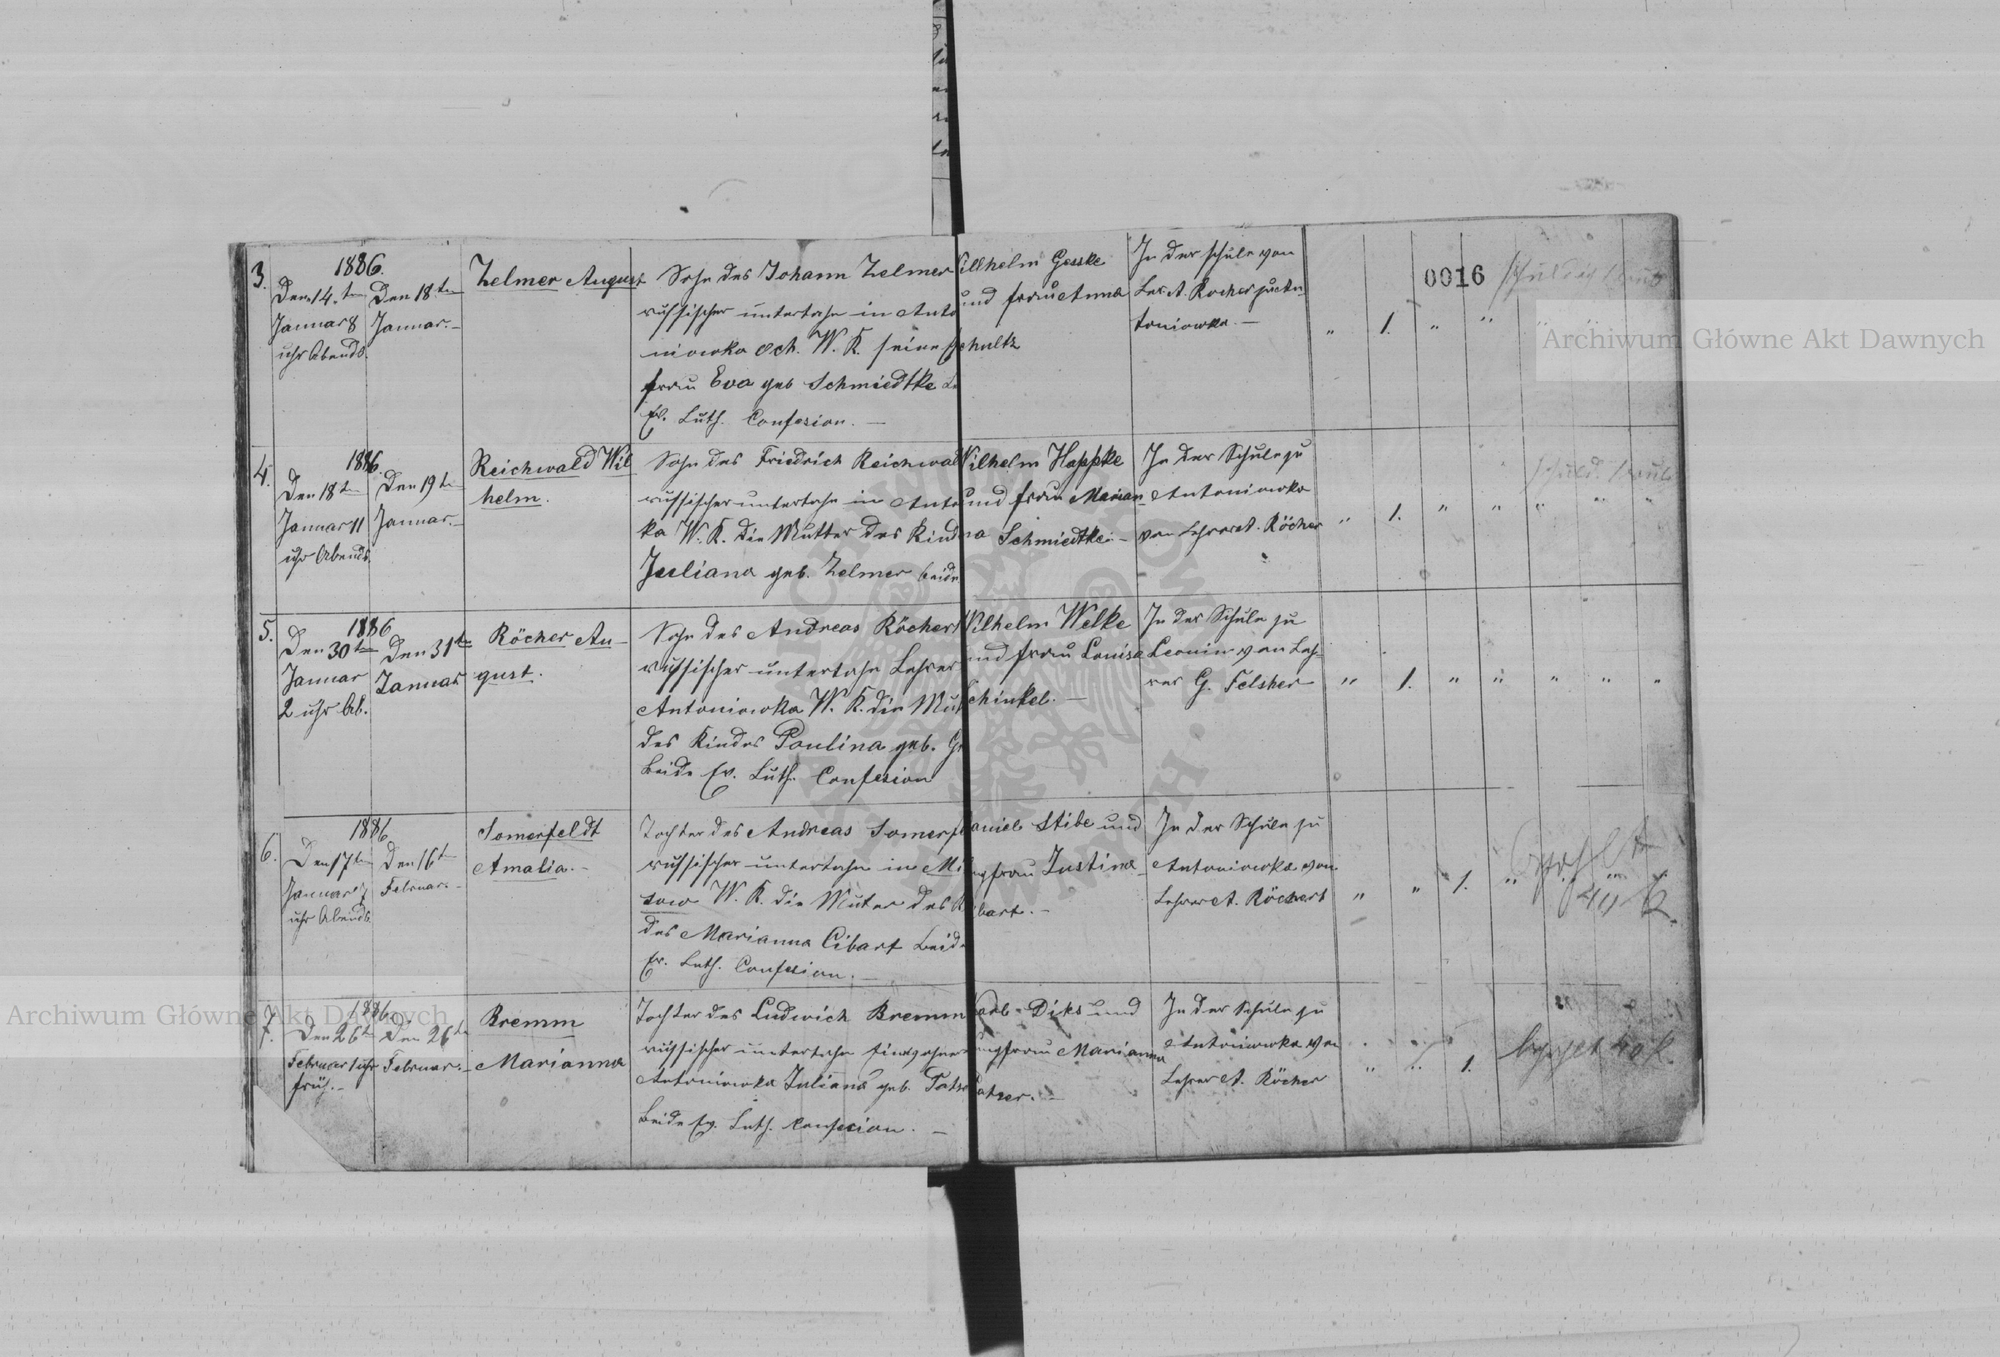 0016
Archiwum Główne Akt Dawnych
3.
1886.
Den 14.ten
Januar 8
uhr Abends.
Den 18.ten
Januar.
Zelmer August
Sohn des Johann Zelmer
russischer untertahn in Anto
niowka Och. W. K. seine
frau Eva geb Schmiedtke
Ev. Luth. Confesion.
Wilhelm Gesske
und frau Anna
Schultz
In der schule von
Ler. A. Rocher zu An
toniowka.
" 1. " "
4.
1886.
Den 18ten
Januar 11
uhr Abends.
Den 19te
Januar.
Reichwald Wil
helm.
Sohn des Friedrich Reichwal
russischer untertahn in Anto
ka W. K. die Mutter des Kind
Juliana geb. Zelmer beide
Wilhelm Happke
und frau Marian
na Schmiedtke.
In der Schule zu
Antoniowka
von Lehrer A. Röcher
" 1. " " " " "
5.
1886
Den 30ten
Januar
2 uhr Ab.
Den 31te
Januar
Röcher Au
gust.
Sohn des Andreas Röchert
russischer untertahn Lehrer
Antoniowka W. K. die Mut
des Kindes Paulina geb.
Beide Ev. Luth. Confesion
Wilhelm Welke
und frau Louisa
Schinkel.
In der Schule zu
Leonin von Leh
rer G. Felsher
" 1. " " " " "
6.
1886
Den 17ten
Januar 7
uhr Abends.
Den 16t
Februar.
Somerfeldt
Amalia.
Tochter des Andreas Somerf
russischer untertahn in
W. K. die Muter des
des Marianna Cibart Beide
Ev. Luth. Confesion.
Daniel Stibe und
Jungfrau Justina
Cibart.
In der Schule zu
Antoniowka von
Lehrer A. Röchert
" " 1. "
40 K.
7.
1886
Den 26ten
Februar 1 uhr
früh.
Den 26te
Februar.
Bremm
Marianna
Tochter des Ludwich Bremm
russischer untertahn
Antoniowka Juliana geb.
Beide Ev. Luth. Confesion.
Karl Diks und
Jungfrau Marianna
In der Schule zu
Antoniowka von
Lehrer A. Röcher
" " 1.
40 k.
Archiwum Główne Akt Dawnych